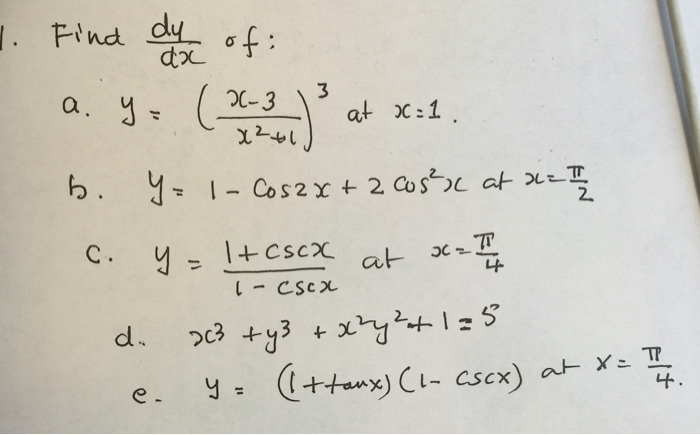 1. Find dy/dx of:
a. y = ((x-3)/(x²+1))³ at x=1.
b. y = 1 - Cos2x + 2 Cos²x at x=π/2
c. y = (1+cscx)/(1-cscx) at x=π/4
d. x³ + y³ + x²y² + 1 = 5
e. y = (1+tanx)(1-cscx) at x=π/4.